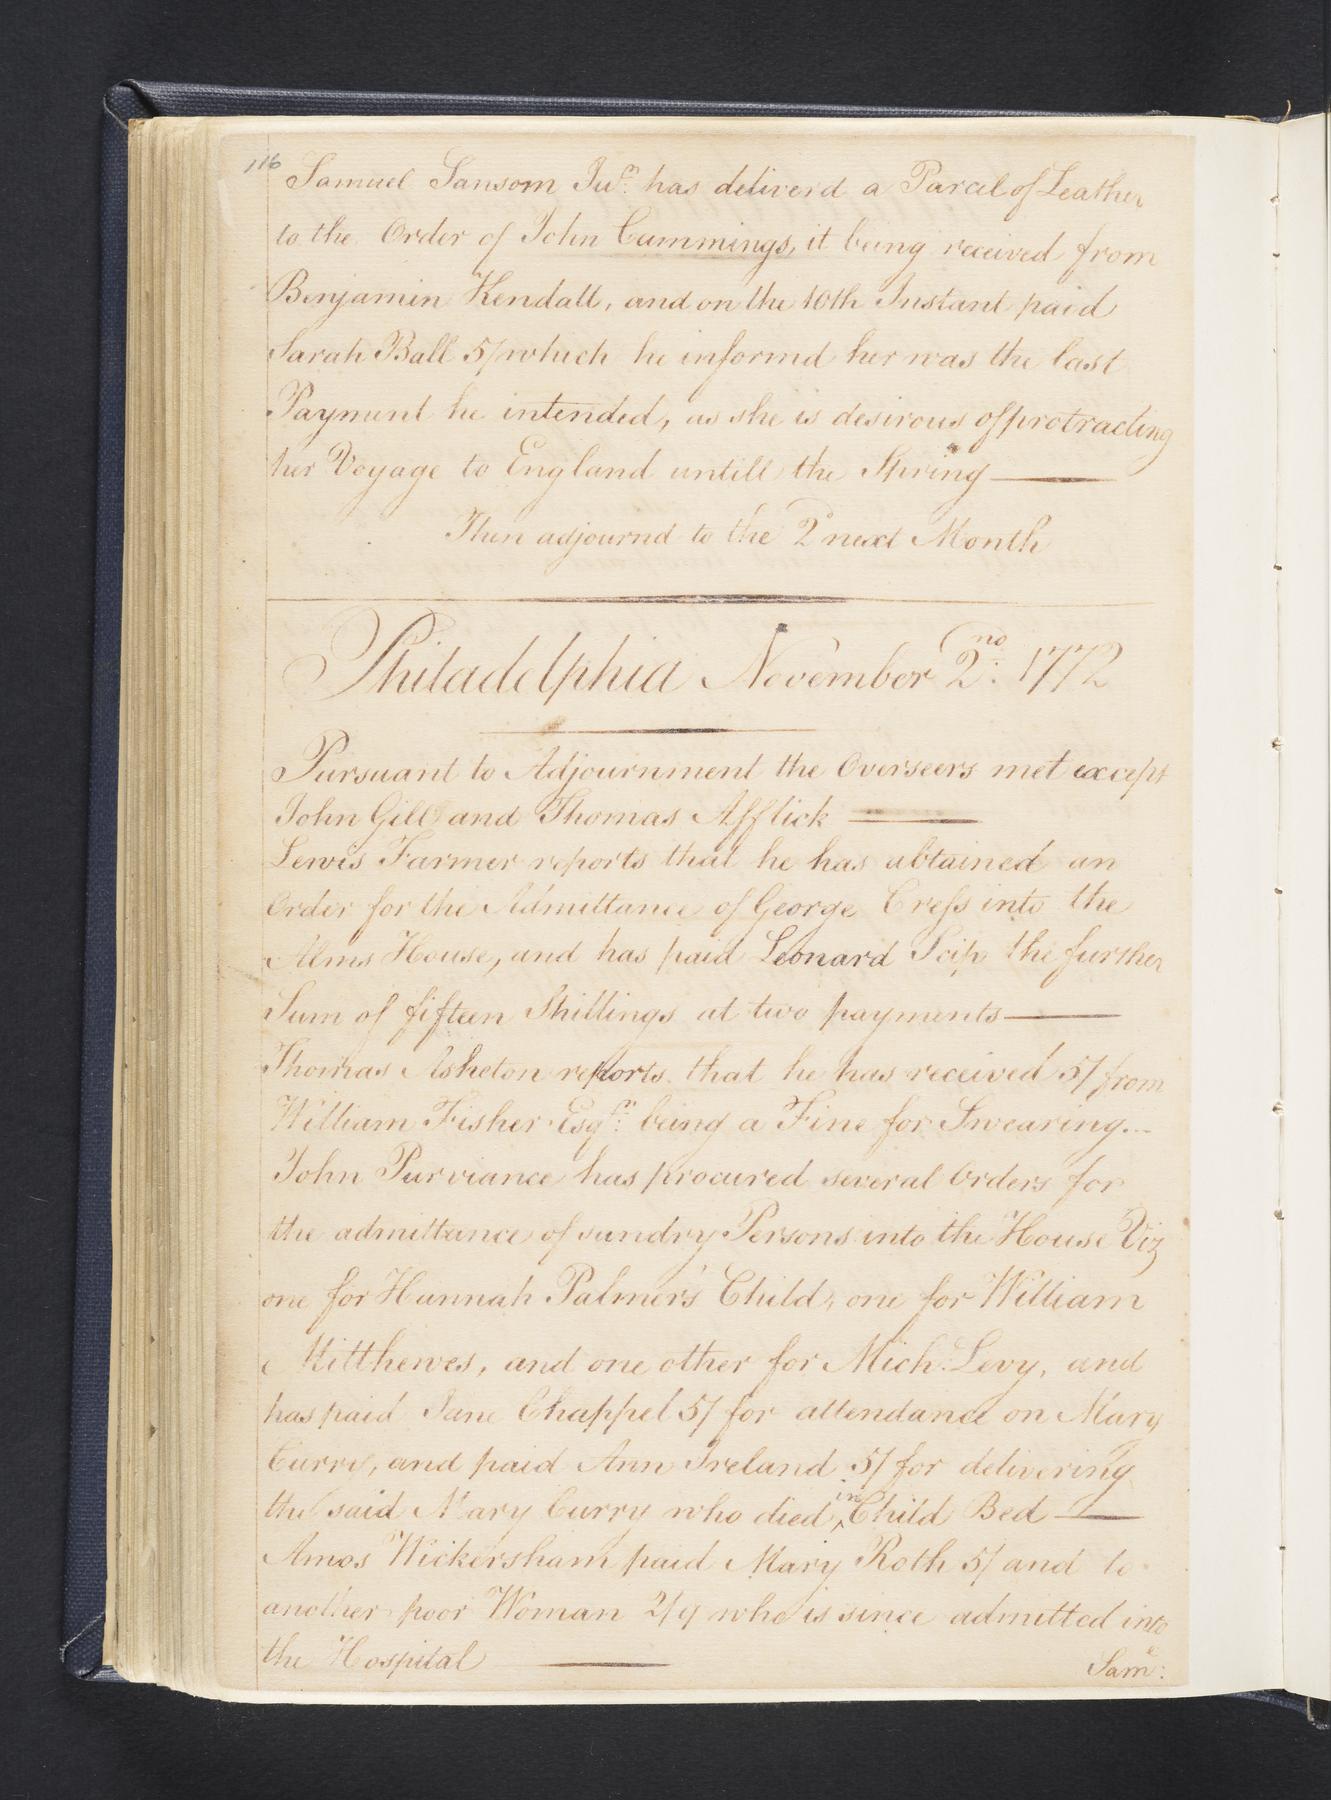 116
Samuel Sansom Junr. has deliverd a Parcel of Leather
to the Order of John Cummings, it being received from
Benjamin Kendall, and on the 10th Instant paid
Sarah Ball 5/ which he informd her was the last
Payment he intended, as she is desirous of protracting
her Voyage to England untill the Spring
Then adjournd to the 2d next Month
Philadelphia November 2no. 1772
Pursuant to Adjournment the Overseers met except
John Gill and Thomas Afflick
Lewis Farmer reports that he has obtained an
Order for the Admittance of George Cress into the
Alms House, and has paid Leonard the further
Sum of fifteen Shillings at two payments
Thomas Asheton reports that he has received 5/ from
William Fisher Esqr. being a Fine for Swearing
John Purviance has procured several Orders for
the admittance of sundry Persons into the House Viz
one for Hannah Palmer's Child, one for William
Mitthewes, and one other for Mich. Levy, and
has paid Jane Chappel 5/ for attendance on Mary
Curry, and paid Ann Ireland 5/ for delivering
the said Mary Curry who died in Child Bed
Amos Wickersham paid Mary Roth 5/ and to
another poor Woman 2/9 who is since admitted into
the Hospital
Saml: